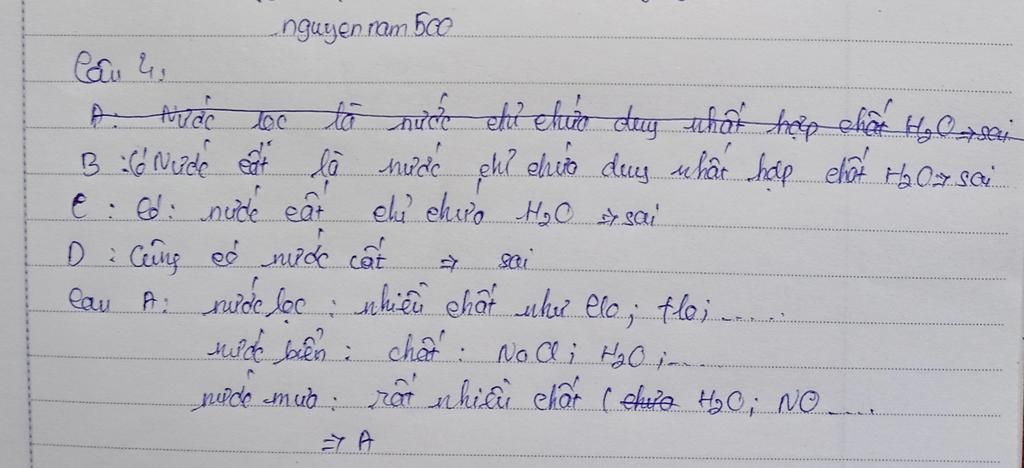 nguyennam500
Câu 4:
A: Nước lọc là nước chỉ chứa duy nhất hợp chất H₂O ⇒ sai
B : Có Nước cất là nước chỉ chứa duy nhất hợp chất H₂O ⇒ sai
C : Có: nước cất chỉ chứa H₂O ⇒ sai
D : Cũng có nước cất ⇒ sai
Câu A: nước lọc : nhiều chất như clo; flo; .....
nước biển : chất : NaCl; H₂O; ...
nước mưa : rất nhiều chất ( chứa H₂O; NO .....
⇒ A